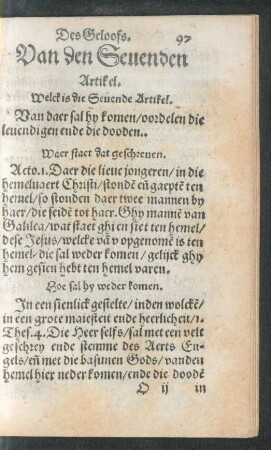 Des Geloofs. 97
Van den Seuenden
Artikel.
Welck is die Seuende Artikel.
Van daer sal hy komen/oordelen die
leuendigen ende die dooden..
Waer staet dat geschreuen.
Acto.1. Daer die lieue jongeren/in die
hemeluaert Christi/stondē eñ gaeptē ten
hemel/so stonden daer twee mannen by
haer/die seidē tot haer. Ghy mannē van
Galilea/wat staet ghi en siet ten hemel/
dese Jesus/welcke vā v opgenomē is ten
hemel/die sal weder komen/gelijck ghy
hem gesien hebt ten hemel varen.
Hoe sal hy weder komen.
In een sienlick gestelte/inden wolckē/
in een grote maiesteit ende heerlichen/1.
Thes.4. Die Heer selfs/sal met een velt
geschrey ende stemme des Aerts En-
gels/eñ met die basunen Gods/vanden
hemel hier neder komen/ende die doodē
O ij in